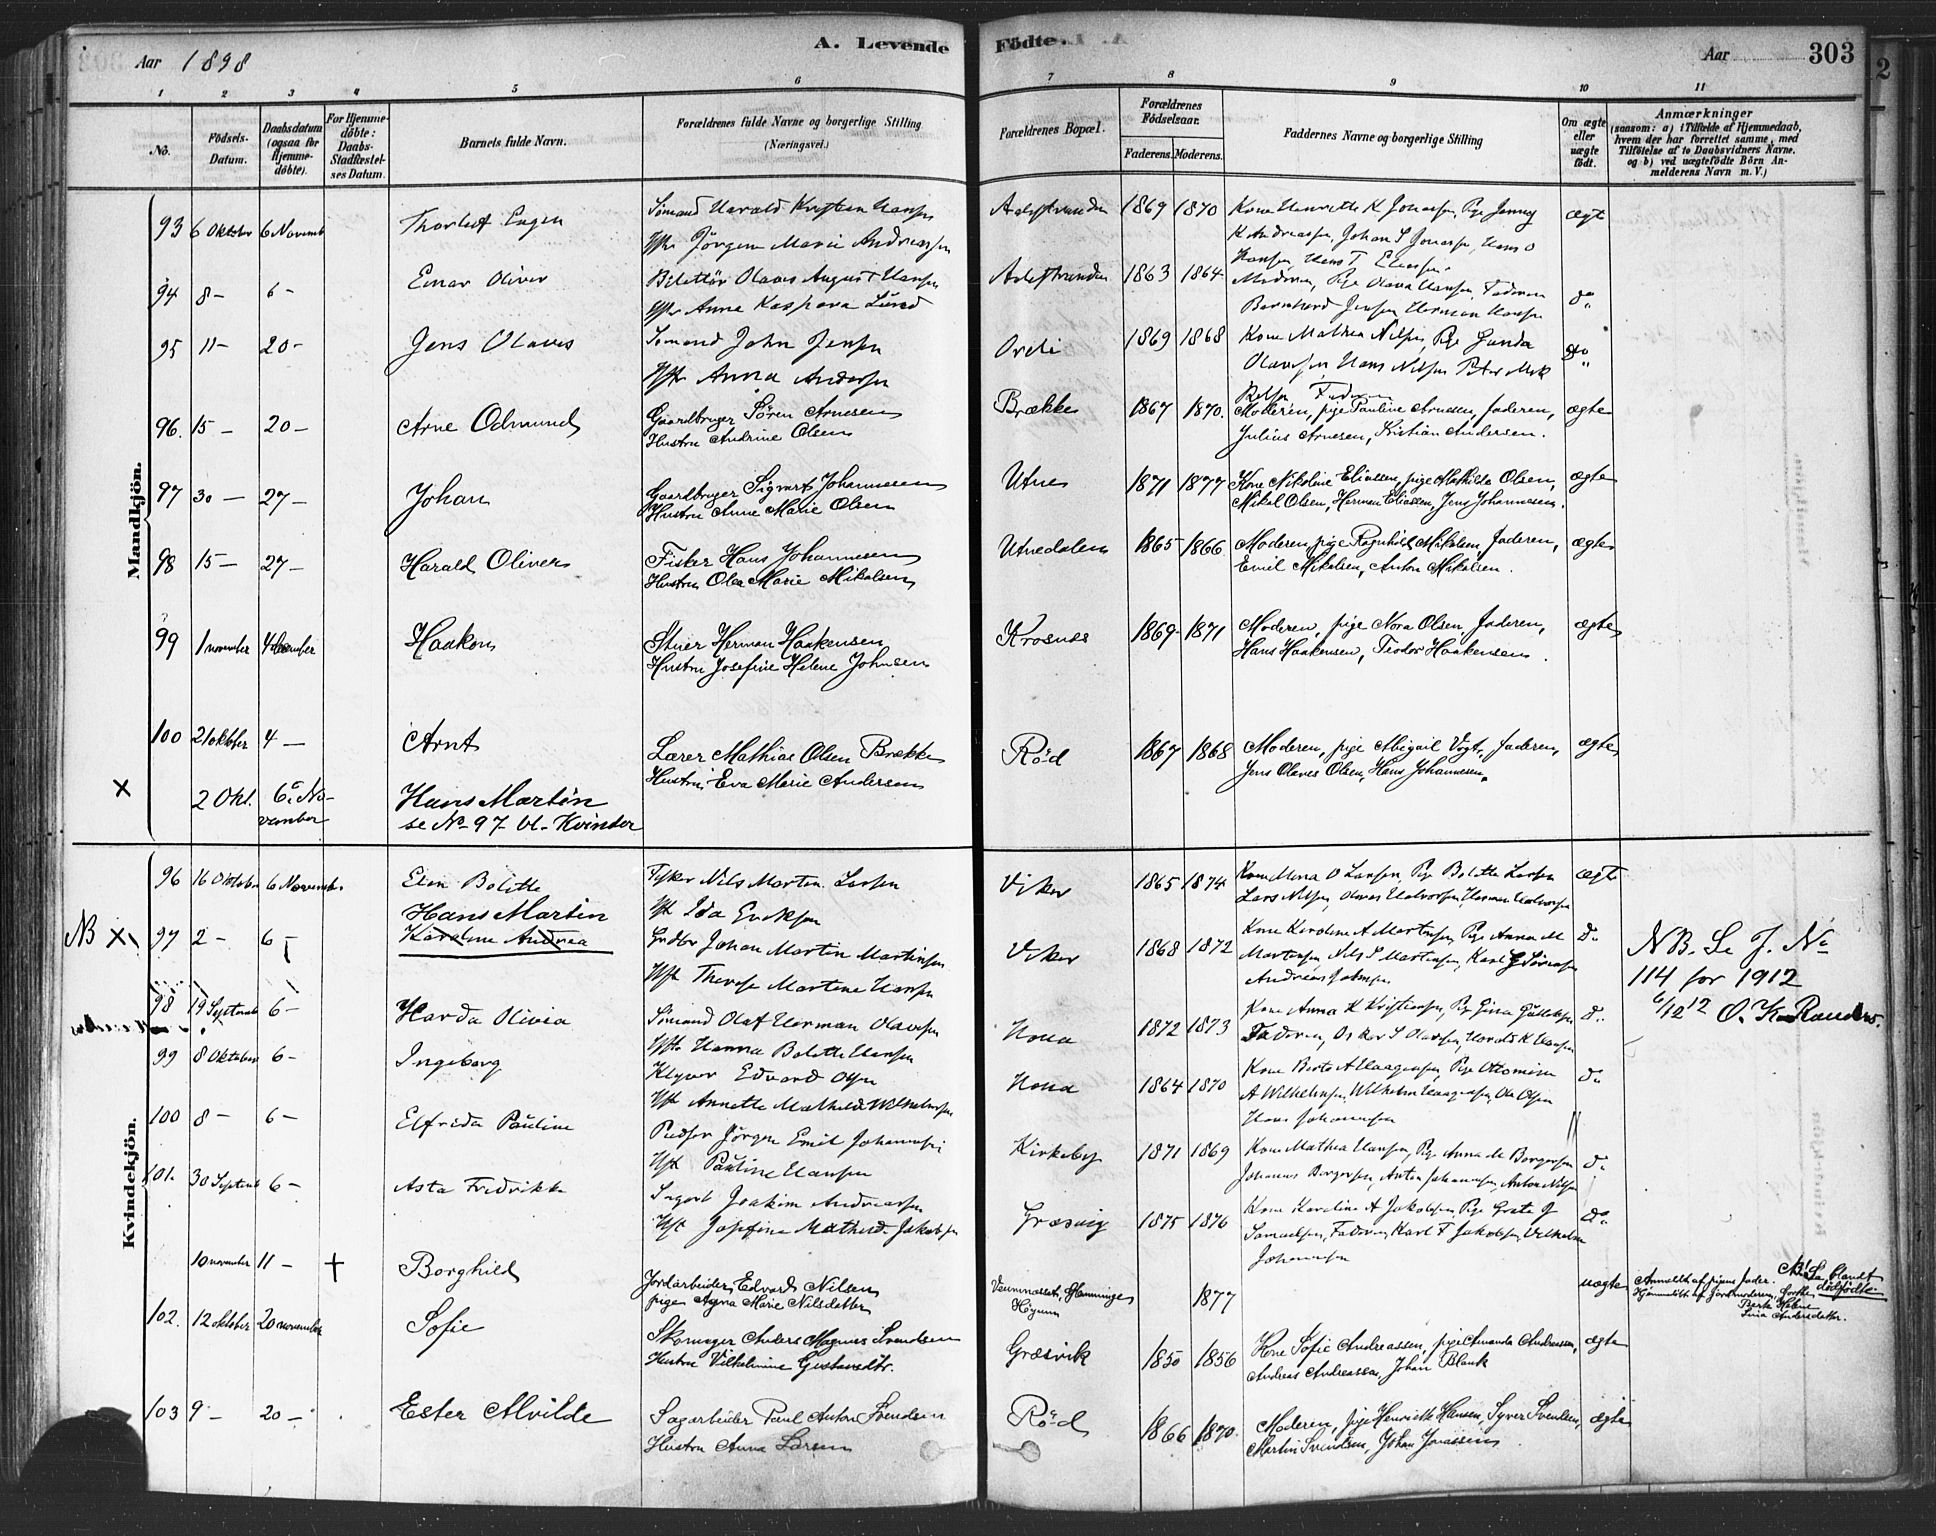 A. Levende Fødte.
Aar 1898
Aar 303
1 2 3 4 5 6 7 8 9 10 11
No.
Fødsels-Datum.
Daabsdatum (ogsaa for Hjemme-døbte).
For Hjemme-døbte: Daabs-Stadfæstel-ses Datum.
Barnets fulde Navn.
Forældrenes fulde Navne og borgerlige Stilling (Næringsvei.)
Forældrenes Bopæl.
Forældrenes Fødselsaar.
Faderens. Moderens.
Faddernes Navne og borgerlige Stilling
Om ægte eller uægte født.
Anmærkninger (saasom: a) i Tilfælde af Hjemmedaab, hvem der har forrettet samme, med Tilføielse af to Daabsvidners Navne, og b) ved uægtefødte Børn An-melderens Navn m. V.)
Mandkjøn.
93 6 Oktober 6 Novemb Thorleif Eugen
Sømand Harald Kristian Hansen
Hstr Jørgine Marie Andreassen
1869 1870 Kone Henriette K Jonassen, Pge Jenny
K Andreassen, Johan S Jonassen, Hans O
Hansen, Hans T Eliassen
ægt
94 8 – 6 – Einar Oliver
Billettør Olaves August Hansen
Hstr Anna Kaspara Lund
1863 1864 Moderen, Pge Olava Hansen, Faderen
Bernhard Jensen Herman Hansen
do
95 11 – 20 – Jens Olaves
Sømand John Jensen
Hstr Anna Andersen
1869 1868 Kone Mathea Nilsen, Pge Gunda
Olavesen, Hans Nilsen Peter Mek
Faderen
do
96. 15 – 20 – Arne Odmund
Gaardbruger Søren Arnesen
Hustru Andrine Olsen
Brække 1867 1870. Moderen, pige Pauline Arnesen, faderen,
Julius Arnesen, Kristian Andersen.
ægte
97 30 – 27 – Johan
Gaardbruger Sigvart Johannesen
Hustru Anne Marie Olsen
Utne 1871 1877 Kone Nikoline Eliassen, pige Mathilda Olsen,
Mikal Olsen, Herman Eliassen, Jens Johannesen.
ægte
98 15 – 27 – Harald Oliver
Fisker Hans Johannesen
Hustru Olea Marie Mikalsen
Utnedalen 1865 1866 Moderen, pige Ragnhild Mikalsen, faderen,
Emil Mikalsen, Anton Mikalsen.
ægte
99 1 november 4 december Haakon
Stuer Herman Haakensen
Hustru Josefine Helene Johnsen
Krosnes 1869 1871 Moderen, pige Nora Olsen, faderen,
Hans Haakensen, Teodor Haakensen.
ægte
100 21 oktober 4 – Arnt
Lærer Mathias Olsen Brække
Hustru Eva Marie Andersen
Rød 1867 1868 Moderen, pige Abigail Vogt, faderen,
Jens Olaves Olsen, Hans Johannesen.
ægte
X 2 Okt. 6te No-vember Hans Martin
se No 97 bl. Kvinder
Kvindekjøn.
96 16 Oktober 6 November Elen Bolette
Fisker Nils Martin Larsen
Hst Ida Eriksen
Viker 1865 1874 Kone Mina O Larsen, Pge Bolette Larsen
Lars Nilsen, Olaves Halvorsen, Herman Halvorsen
ægte
NB X 97 2 – 6 – Hans Martin
Karoline Andrea
Grdbr Johan Martin Martinsen
Hst Therese Martine Hansen
Viker 1868 1872 Kone Karoline A Martinsen, Pge Anna M
Martinsen Nils S Martinsen, Karl G Sørensen
Andreas Johnsen
do
NB. Se J. No
114 for 1912
6/12 12 O. K. Randers.
98 19 Septemb 6 – Harda Olivia
Sømand Olaf Herman Olavesen
Hst Hanna Bolette Hansen
Hona 1872 1873 Kone Anna K Kristiansen, Pge Gina Gulleksen
Faderen, Oskar S Olavesen, Harald K Hansen
do
99 8 Oktober 6 – Ingeborg
Klyver Edvard Olsen
Hst Annette Mathilde Wilhelmsen
Hona 1864 1870 Kone Berte A Haagensen, Pge Ottomine
A Wilhelmsen, Wilhelm Haagensen, Ole Olsen
Hans Johannesen
do
100 8 – 6 – Elfrida Pauline
Pudser Jørgen Emil Johannesen
Hst Pauline Hansen
Kirkeby 1871 1869 Kone Mathea Hansen, Pge Anna M Borgersen
Johannes Borgersen, Anton Johannesen, Anton Nilsen
do
101. 30 Septemb 6 – Asta Fredrikke
Sagarb Joakim Andreassen
Hst Josefine Mathilde Jakobsen
Græsvig 1875 1876 Kone Karoline A Jakobsen, Pge Grete J
Samuelsen, Faderen, Karl F Jakobsen, Vilhelm
Johannesen
do
10 november 11 – + Borghild
Jordarbeider Edvard Nilsen
pige Agna Marie Nilsdatter
1877
uægte
Anmeldt af pigens fader.
NB. Se blandt dødfødte
Hjemmedøbt af Jordmoderen,
102. 12 oktober 20 november Sofie
Skomager Anders Magnus Svendsen
Hustru Vilhelmine Gustavsdtr.
Græsvik 1850 1856 Kone Sofie Andreassen, pige Amanda Andreassen,
Andreas Andreassen, Johan Blank
ægte
103 9 – 20 – Ester Alvilde
Sagarbeider Paul Anton Svendsen
Hustru Anna Larsen
Rød 1866 1870. Moderen, pige Henriette Hansen, Syver Svendsen,
Martin Svendsen, Johan Jonassen
ægte